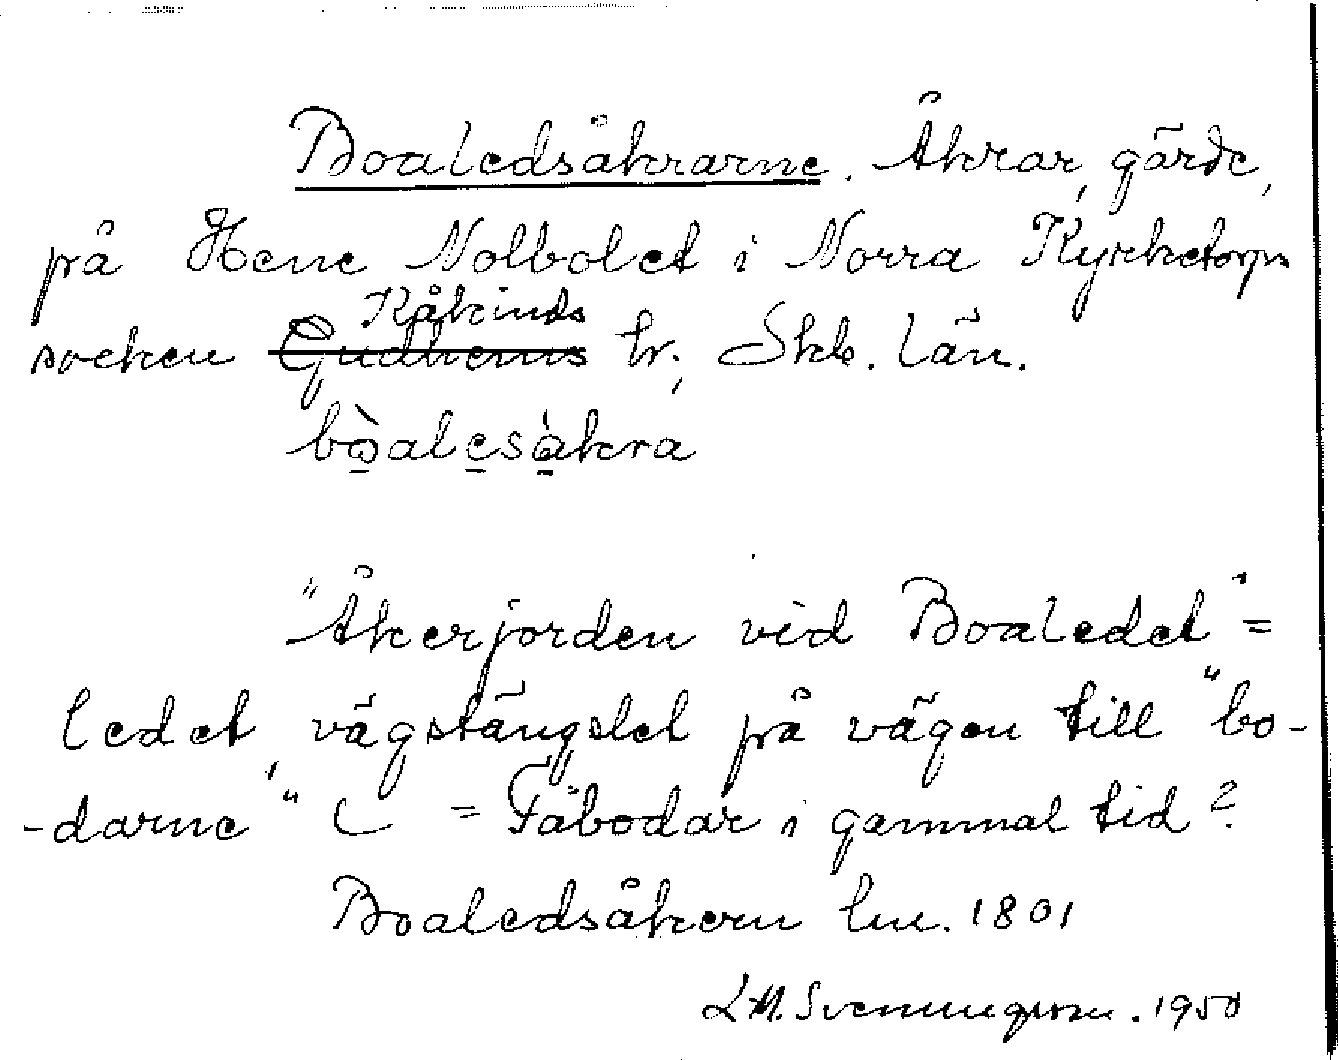 Boaledsåkrarne. Åkrar, gärde,
på Hene Nolbolet i Norra Kyrketorps
Kåkinds
socken Gudhems hr; Skb. län.
bòalesåkra
"Åkerjorden vid Boaledet" =
ledet, vägstängslet på vägen till "bo-
-darne" = Fäbodar i gammal tid?
Boaledsåkern lm. 1801
L M. Svenungsson. 1950